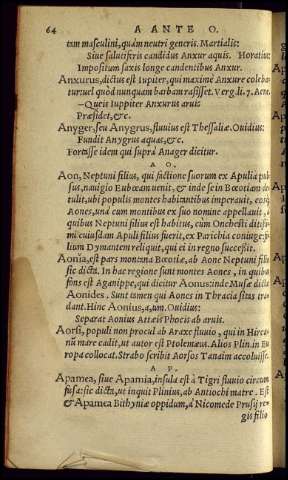 64 A ANTE O.
tam masculini, quàm neutri generis. Martialis:
Siue salutiferis candidus Anxur aquis. Horatius:
Impositum saxis longe candentibus Anxur.
Anxurus, dictus est Iupiter, qui maximè Anxure coleba
tur: uel quòd nunquam barbam rasisset. Verg. li. 7. Aene.
—Queis Iuppiter Anxurus aruis
Præsidet, &c.
Anyger, seu Anygrus, fluuius est Thessaliæ. Ouidius:
Fundit Anygrus aquas, &c.
Fortasse idem qui suprà Anager dicitur.
A O.
Aon, Neptuni filius, qui factione suorum ex Apulia pul
sus, nauigio Eubœam uenit, & inde se in Bœotiam con
tulit: ubi populis montes habitantibus imperauit, eosq́
Aones, und cum montibus ex suo nomine appellauit, à
quibus Neptuni filius est habitus, cùm Onchesti
cuiusdam Apuli filius fuerit, ex Pariclia coniuge
lium Dymantem reliquit, qui ei in regno successit.
Aonia, est pars montana Bœotiæ, ab Aone Neptuni filio
sic dicta. In hac regione sunt montes Aones, in quibus
fons est Aganippe, qui dicitur Aonus: inde Musæ dictæ
Aonides. Sunt tamen qui Aones in Thracia sitos tra
dant. Hinc Aonius, a, um. Ouidius:
Separat Aonius Actæis Phocis ab aruis.
Aorsi, populi non procul ab Araxe fluuio, qui in Hirca
nū mare cadit, ut autor est Ptolemæus. Alios Plin. in Eu
ropa collocat. Strabo scribit Aorsos Tanaim accoluisse.
A P.
Apamea, siue Apamia, insula est à Tigri fluuio circum
fusa: sic dicta, ut inquit Plinius, ab Antiochi matre. Est
& Apamea Bithyniæ oppidum, à Nicomede Prusiæ re=
gis filio